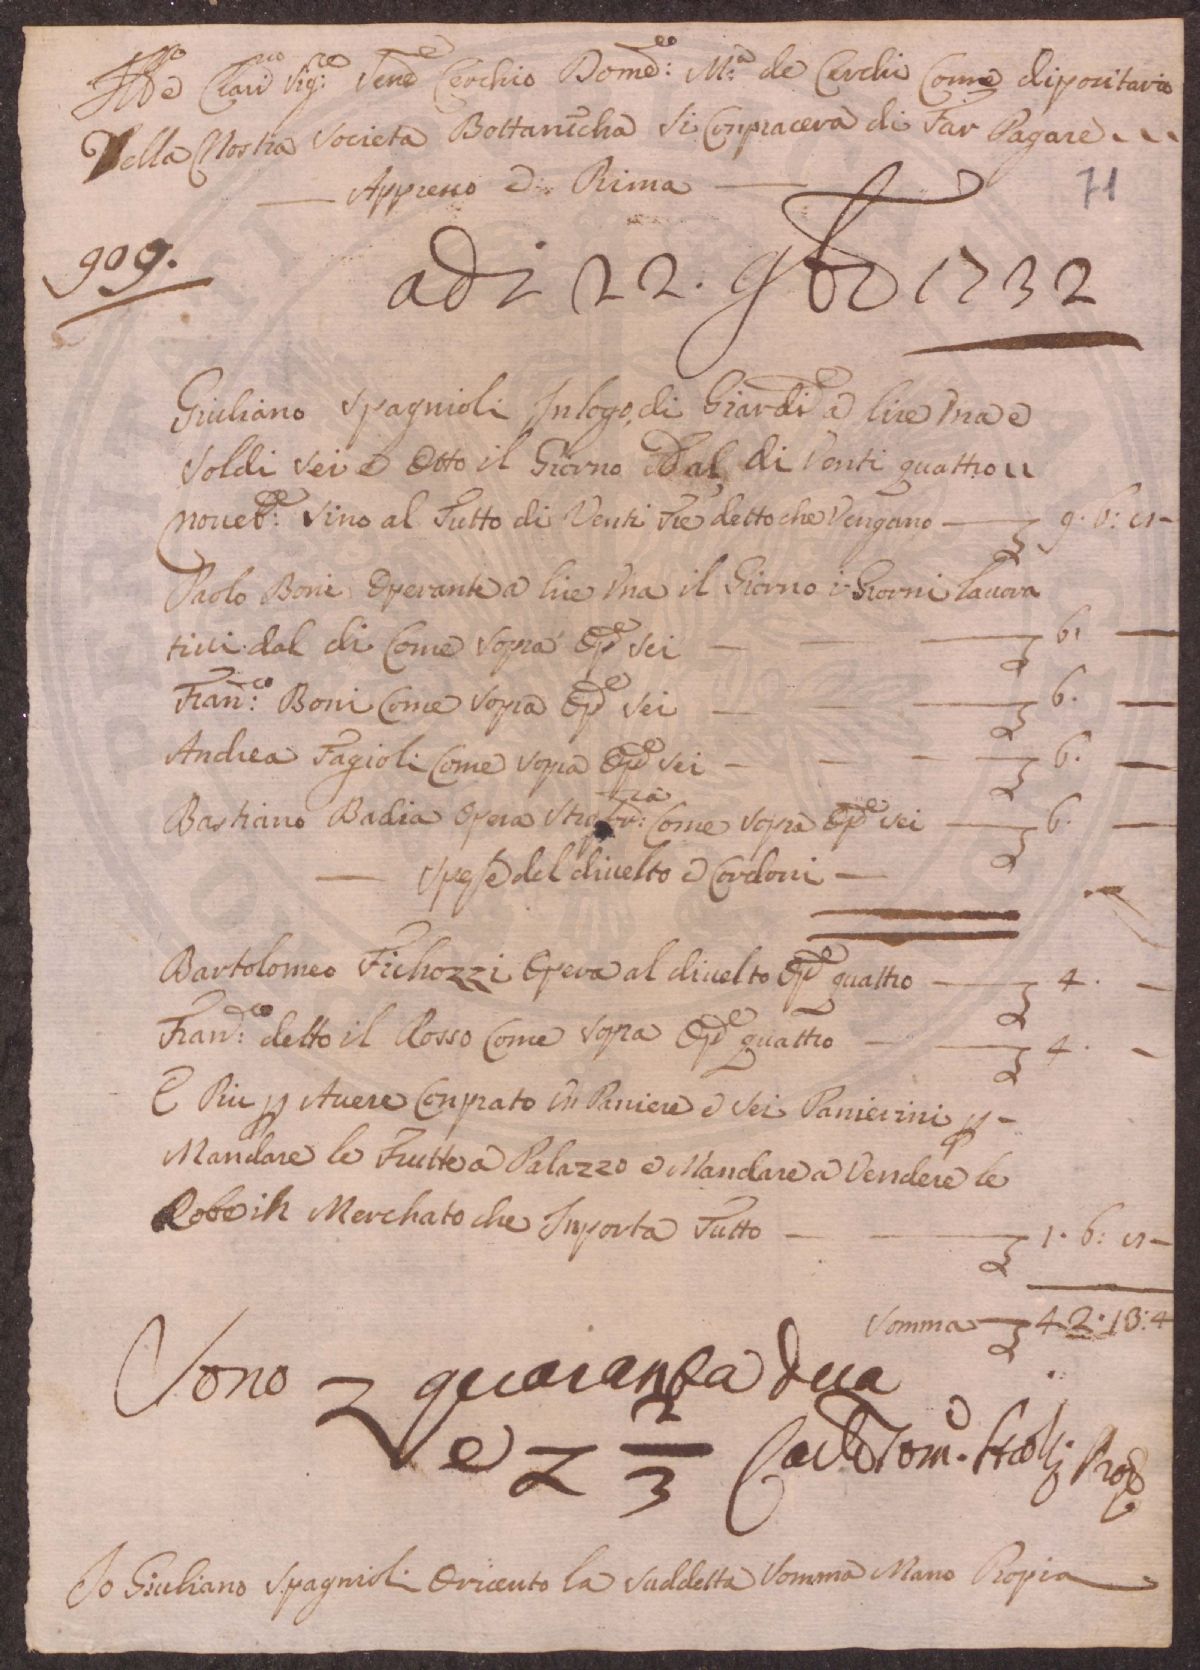 e Clar.mo Sig.re Sene Cerchio Dome.co M.a de Cerchi Come dipositario
Della Nostra Societa Bottanicha Si Conpiacera di Far Pagare
Appresso e Prima
71
909.
adi 22. 9bre 1732
Giuliano Spagnioli In logo di Giardi.e a lire Una e
Soldi Sei e Otto il Giorno Dal di Venti quattro
noveb.e Sino al Tutto di Venti Tre detto che Vengano 9. 6:
Paolo Boni Operante a lire Una il Giorno i Giorni lavora
tivi dal di Come Sopra Op.e Sei 6
Fran.co Boni Come Sopra Op.e Sei 6.
Andrea Fagioli Come Sopra Op.e Sei 6.
Bastiano Badia Opera Come Sopra Op.e Sei 6.
Spese del divelto e Cordoni
Bartolomeo Fichozzi Opera al divelto Op.e quattro 4.
Fran.co detto il Rosso Come Sopra Op.e quattro 4.
E Piu pp Avere Conprato Un Paniere e Sei Panierini pp
Mandare le Frutte a Palazzo e Mandare a Vendere le
Robe in Merchato che Inporta Tutto 1. 6:
Somma 42. 13: 4
Sono quaranta dua
e 2/3
Io Giuliano Spagnioli O ricevuto la Suddetta Somma Mano Propia